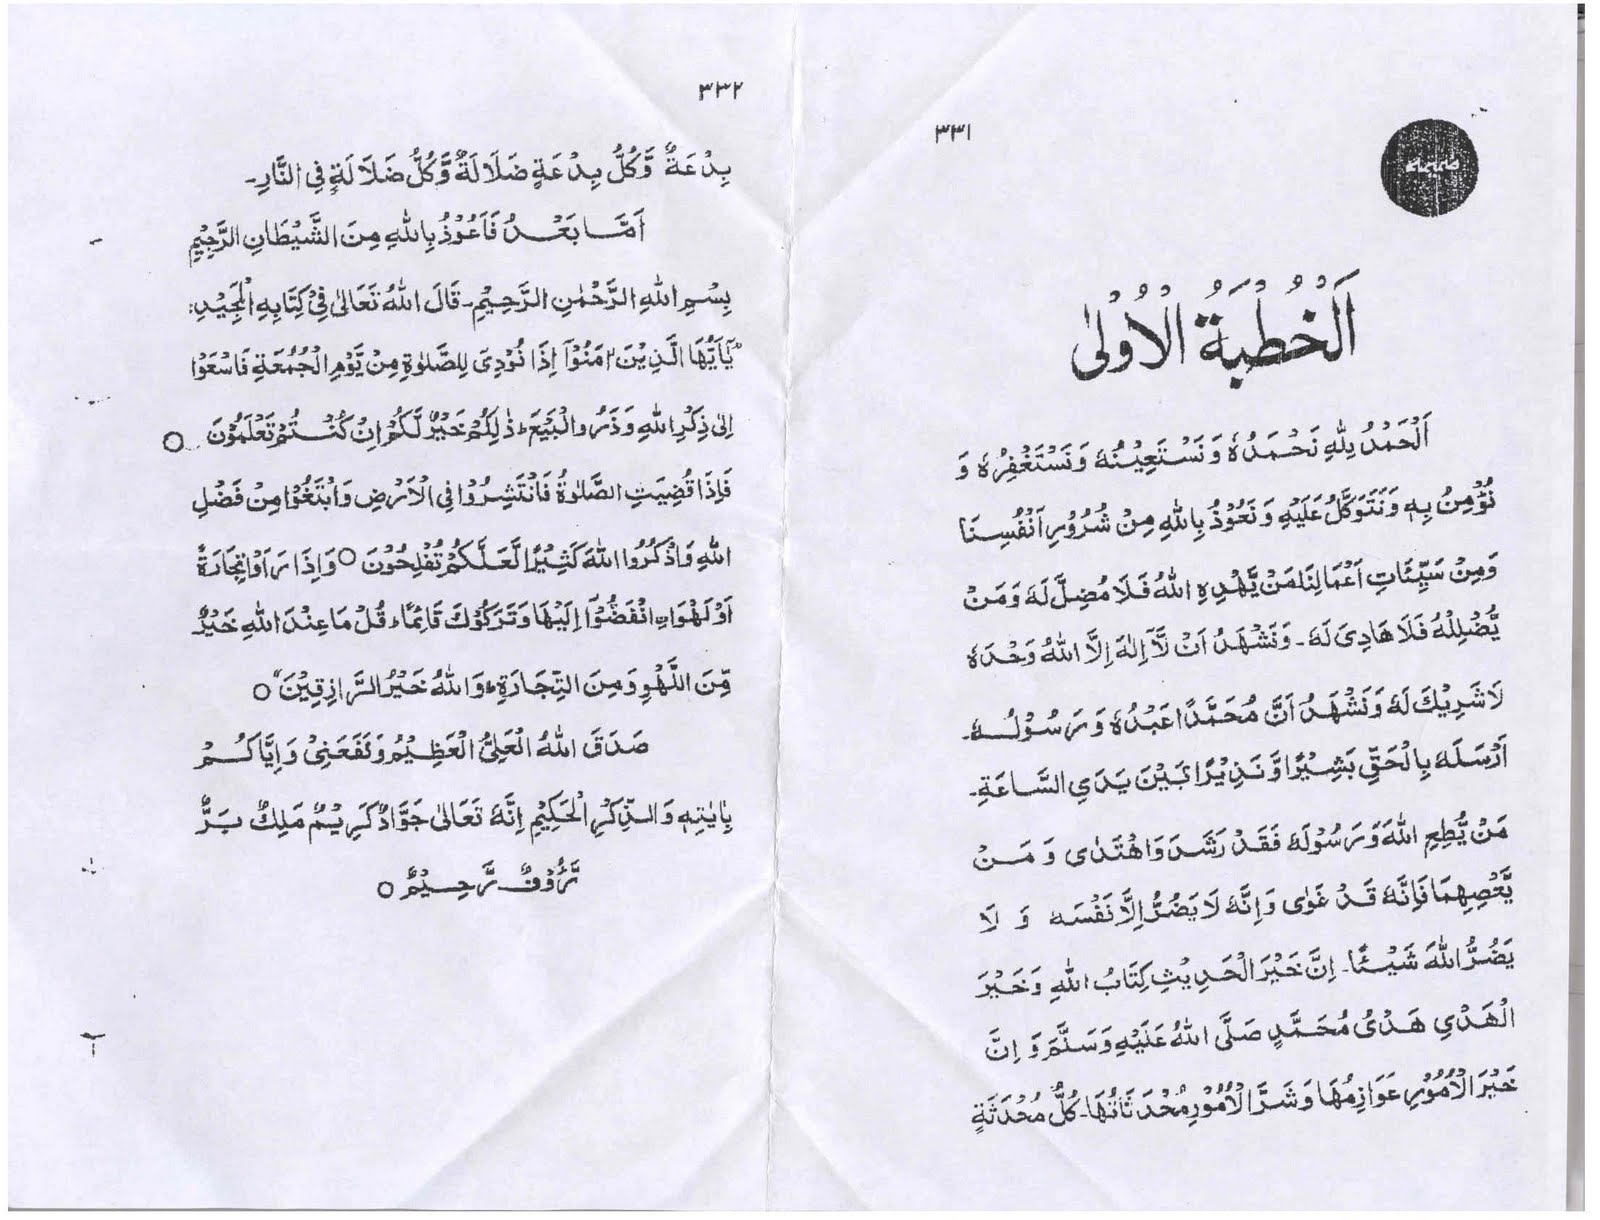 ٣٣١
ضميمه
اَلْخُطْبَةُ الْاُوْلٰى
اَلْحَمْدُ لِلّٰهِ نَحْمَدُهٗ وَنَسْتَعِيْنُهٗ وَنَسْتَغْفِرُهٗ وَ
نُؤْمِنُ بِهٖ وَنَتَوَكَّلُ عَلَيْهِ وَنَعُوْذُ بِاللّٰهِ مِنْ شُرُوْرِ اَنْفُسِنَا
وَمِنْ سَيِّئَاتِ اَعْمَالِنَا مَنْ يَّهْدِهِ اللّٰهُ فَلَا مُضِلَّ لَهٗ وَمَنْ
يُّضْلِلْهُ فَلَا هَادِىَ لَهٗ ۔ وَنَشْهَدُ اَنْ لَّآ اِلٰهَ اِلَّا اللّٰهُ وَحْدَهٗ
لَا شَرِيْكَ لَهٗ وَنَشْهَدُ اَنَّ مُحَمَّدًا عَبْدُهٗ وَرَسُوْلُهٗ ۔
اَرْسَلَهٗ بِالْحَقِّ بَشِيْرًا وَّنَذِيْرًا بَيْنَ يَدَيِ السَّاعَةِ ۔
مَنْ يُّطِعِ اللّٰهَ وَرَسُوْلَهٗ فَقَدْ رَشَدَ وَاهْتَدٰى وَمَنْ
يَّعْصِهِمَا فَاِنَّهٗ قَدْ غَوٰى وَاِنَّهٗ لَا يَضُرُّ اِلَّا نَفْسَهٗ وَلَا
يَضُرُّ اللّٰهَ شَيْئًا ۔ اِنَّ خَيْرَ الْحَدِيْثِ كِتَابُ اللّٰهِ وَخَيْرَ
الْهَدْيِ هَدْىُ مُحَمَّدٍ صَلَّى اللّٰهُ عَلَيْهِ وَسَلَّمَ وَ اِنَّ
خَيْرَ الْاُمُوْرِ عَوَازِمُهَا وَشَرَّ الْاُمُوْرِ مُحْدَثَاتُهَا ۔ كُلُّ مُحْدَثَةٍ
٣٣٢
بِدْعَةٌ وَّكُلُّ بِدْعَةٍ ضَلَالَةٌ وَّكُلُّ ضَلَالَةٍ فِى النَّارِ ۔
اَمَّا بَعْدُ فَاَعُوْذُ بِاللّٰهِ مِنَ الشَّيْطَانِ الرَّجِيْمِ
بِسْمِ اللّٰهِ الرَّحْمٰنِ الرَّحِيْمِ ۔ قَالَ اللّٰهُ تَعَالٰى فِىْ كِتَابِهِ الْمَجِيْدِ:
"يٰٓاَيُّهَا الَّذِيْنَ اٰمَنُوْٓا اِذَا نُوْدِىَ لِلصَّلٰوةِ مِنْ يَّوْمِ الْجُمُعَةِ فَاسْعَوْا
اِلٰى ذِكْرِ اللّٰهِ وَذَرُوا الْبَيْعَ ؕ ذٰلِكُمْ خَيْرٌ لَّكُمْ اِنْ كُنْتُمْ تَعْلَمُوْنَ ○
فَاِذَا قُضِيَتِ الصَّلٰوةُ فَانْتَشِرُوْا فِى الْاَرْضِ وَابْتَغُوْا مِنْ فَضْلِ
اللّٰهِ وَاذْكُرُوا اللّٰهَ كَثِيْرًا لَّعَلَّكُمْ تُفْلِحُوْنَ ○ وَاِذَا رَاَوْا تِجَارَةً
اَوْ لَهْوَا ۨ انْفَضُّوْٓا اِلَيْهَا وَتَرَكُوْكَ قَآئِمًا ؕ قُلْ مَا عِنْدَ اللّٰهِ خَيْرٌ
مِّنَ اللَّهْوِ وَمِنَ التِّجَارَةِ ؕ وَاللّٰهُ خَيْرُ الرَّازِقِيْنَ" ○
صَدَقَ اللّٰهُ الْعَلِىُّ الْعَظِيْمُ وَنَفَعَنِىْ وَاِيَّاكُمْ
بِاٰيٰتِهٖ وَالذِّكْرِ الْحَكِيْمِ اِنَّهٗ تَعَالٰى جَوَّادٌ كَرِيْمٌ مَلِكٌ بَرٌّ
رَّءُوْفٌ رَّحِيْمٌ ○